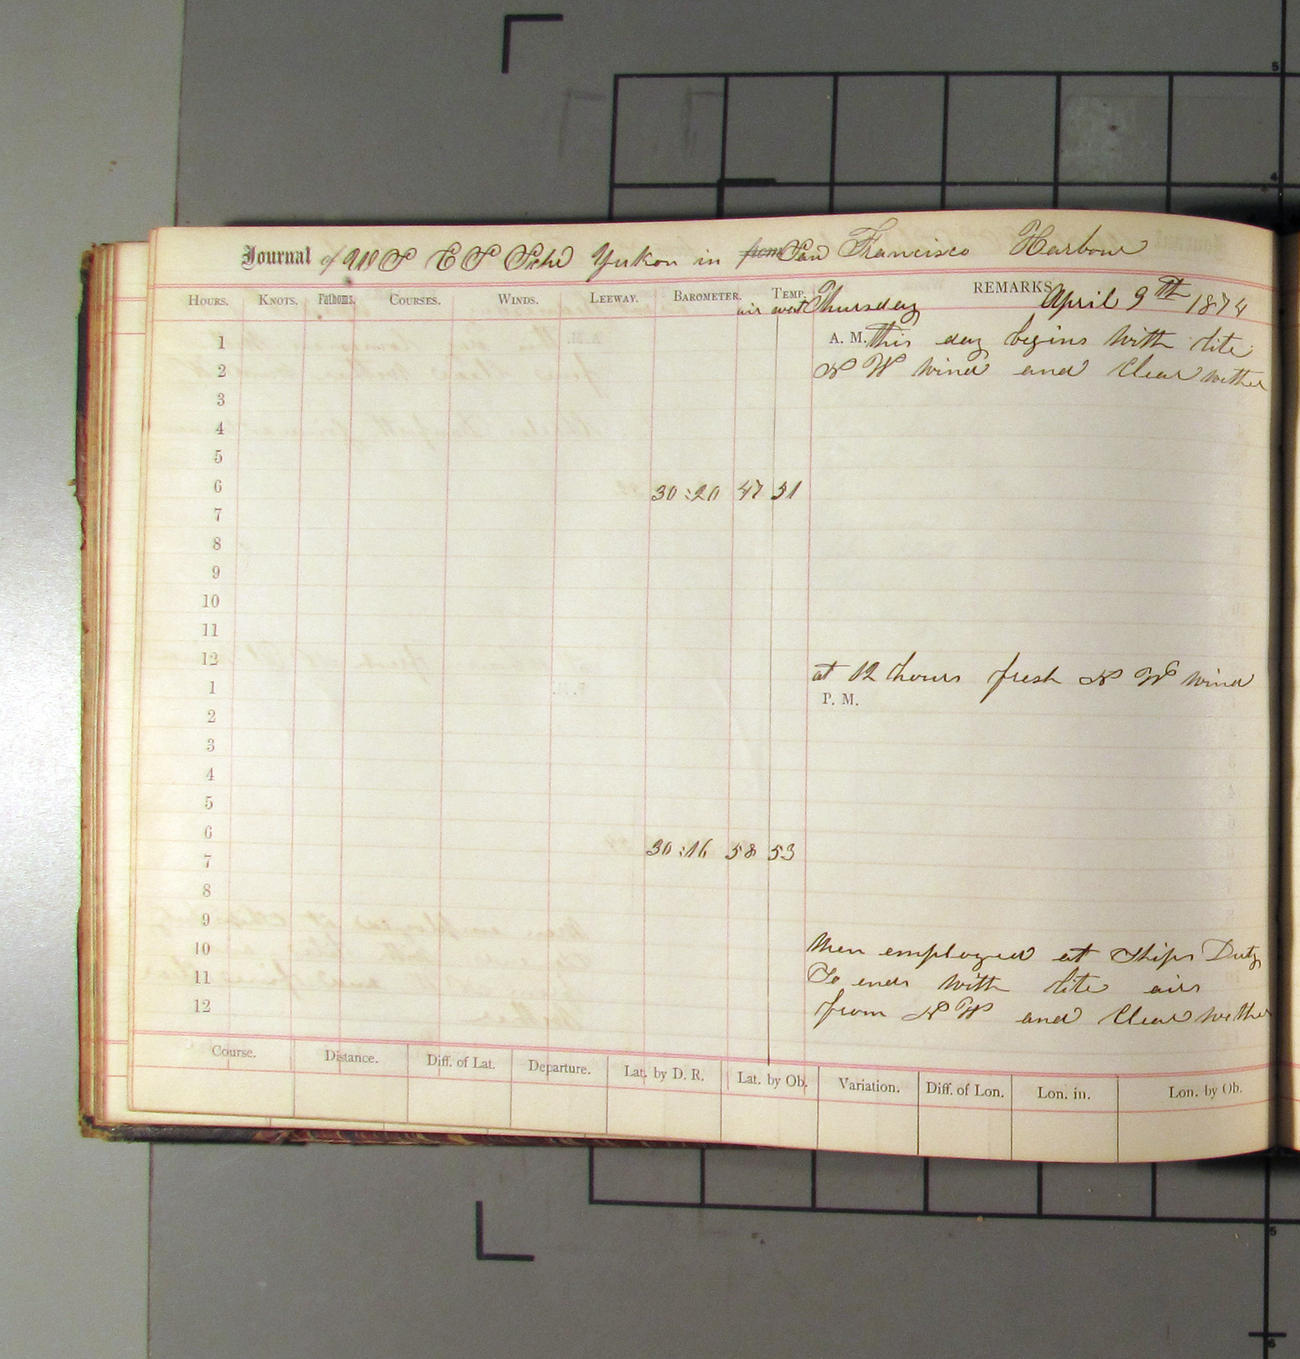 Journal of U S C S Schr Yukon in from San Francisco Harbour
HOURS. KNOTS. Fathoms. COURSES. WINDS. LEEWAY. BAROMETER. TEMP. REMARKS.
air wat Thursday April 9th 1874
1 A. M. This day begins with lite
2 N W wind and Clear wether
3
4
5
6 30:20 47 51
7
8
9
10
11
12 at 12 hours fresh N W wind
1 P. M.
2
3
4
5
6 30:16 58 53
7
8
9
10 Men employed at Ships Duty
11 So ends with lite airs
12 from N W and Clear wether
Course. Distance. Diff. of Lat. Departure. Lat. by D. R. Lat. by Ob. Variation. Diff. of Lon. Lon. in. Lon. by Ob.
5
4
5
6